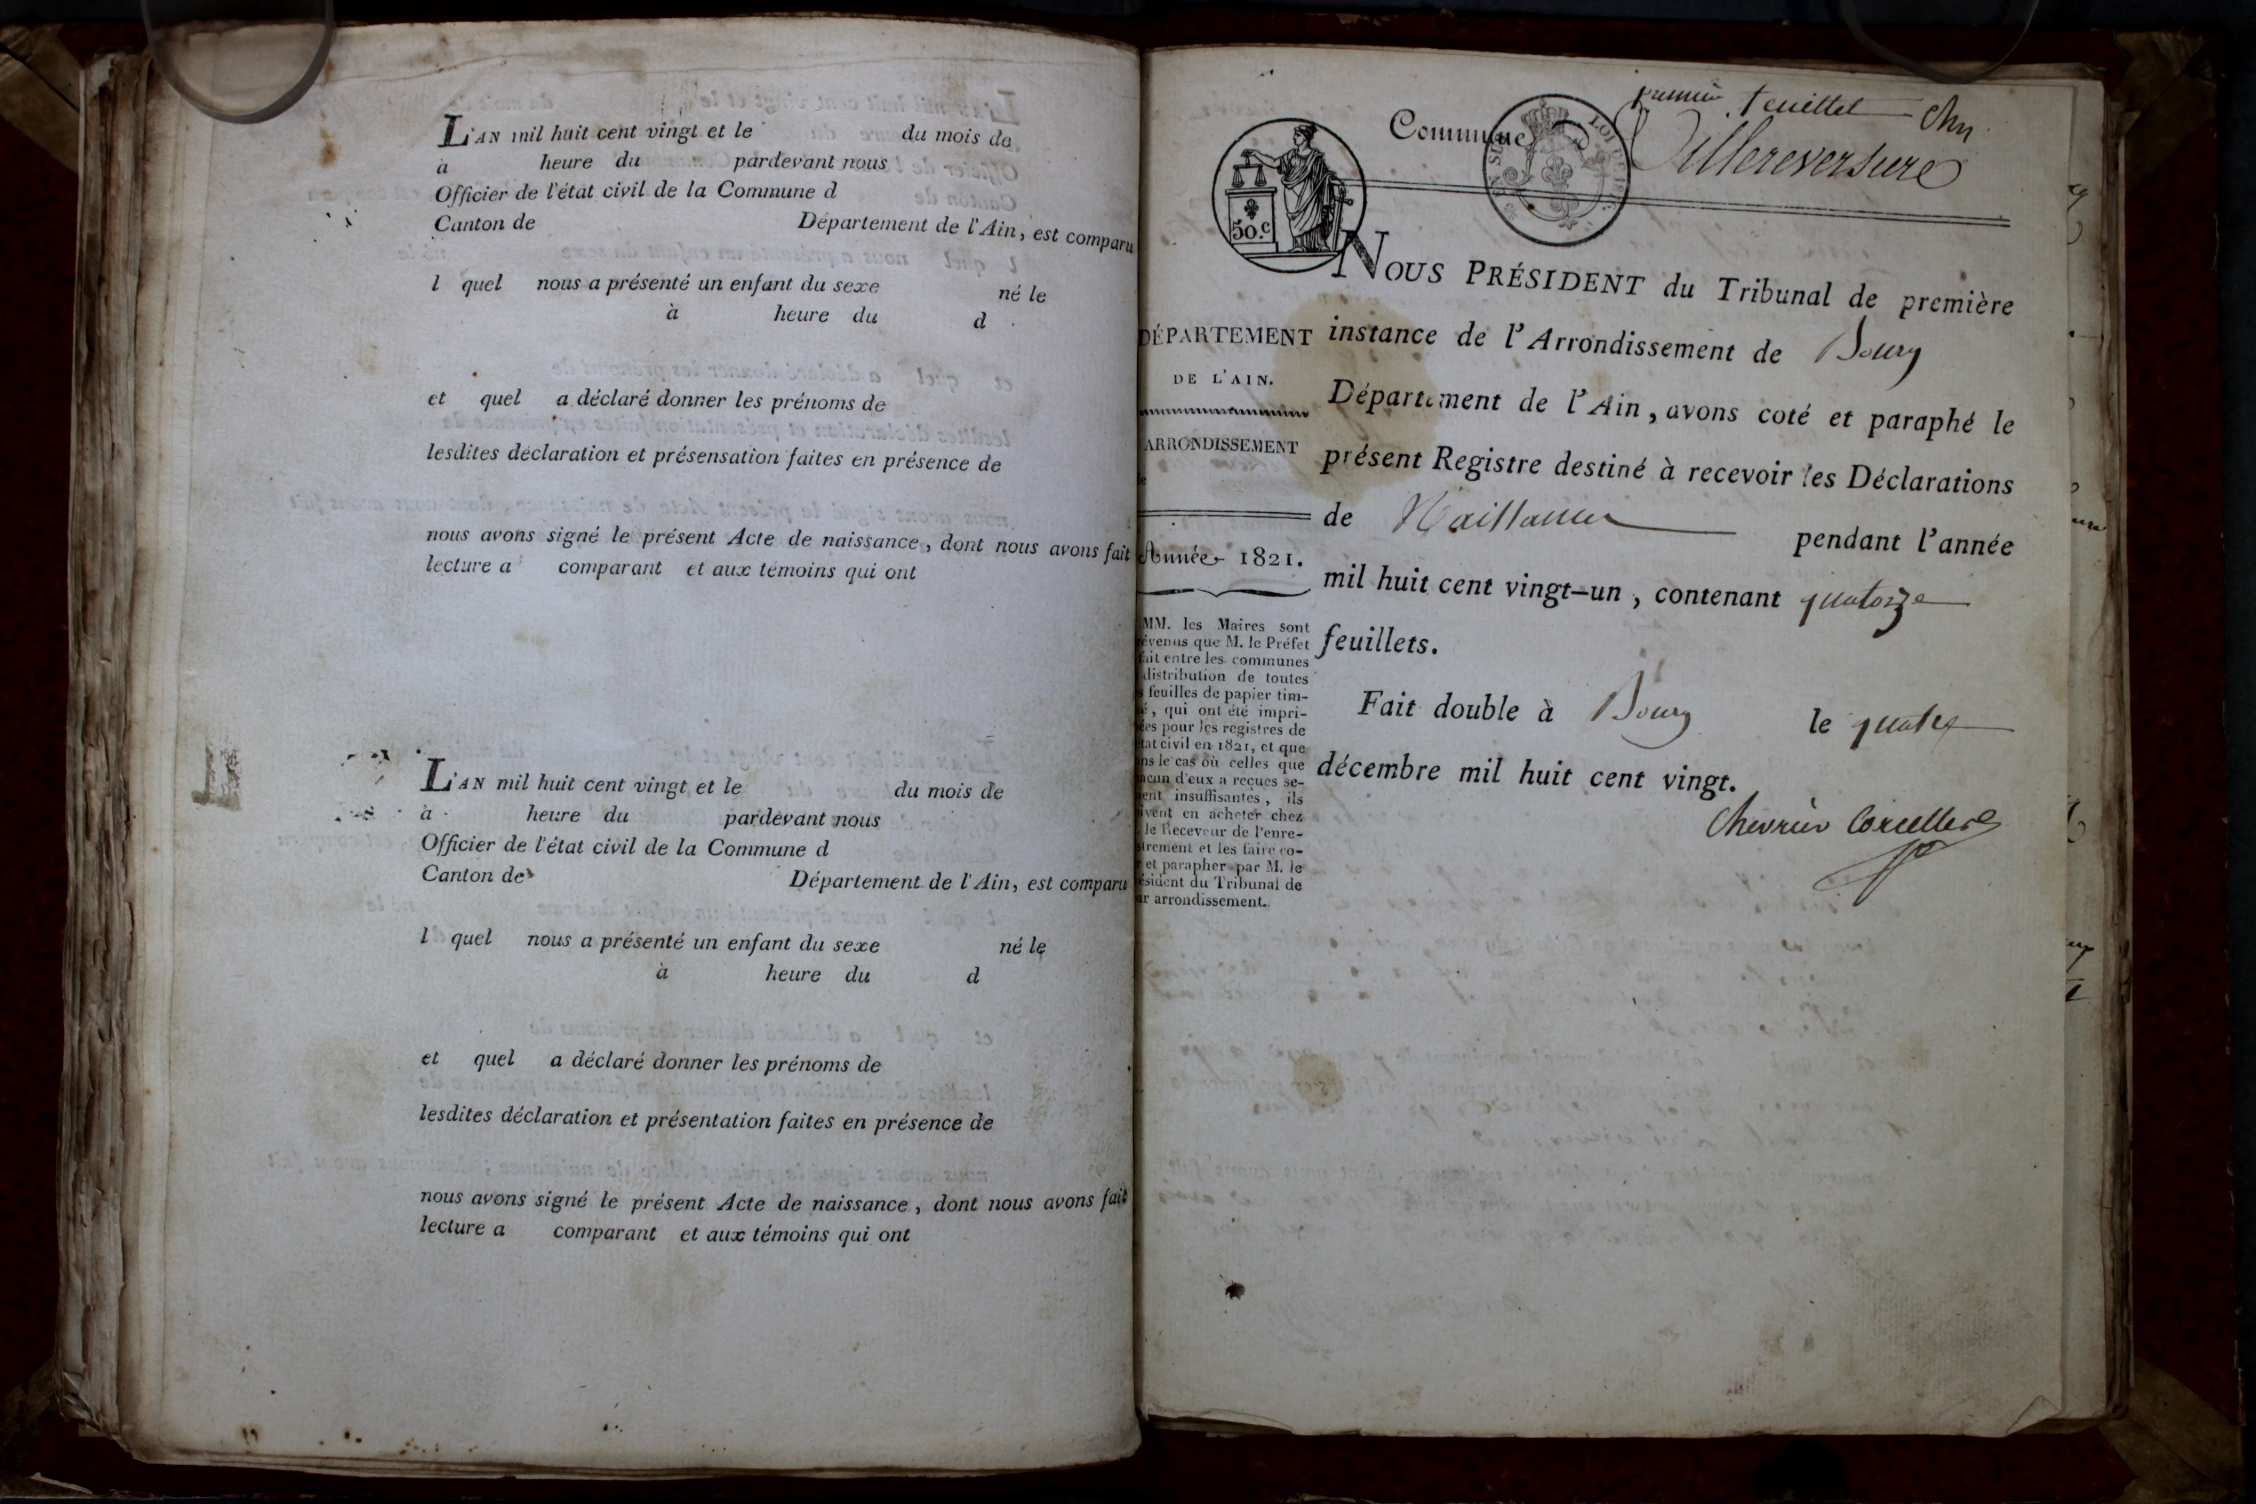 L'AN mil huit cent vingt et le du mois de
à heure du pardevant nous
Officier de l'état civil de la Commune d
Canton de Département de l'Ain, est comparu
l quel nous a présenté un enfant du sexe né le
à heure du d
et quel a déclaré donner les prénoms de
lesdites déclaration et présensation faites en présence de
nous avons signé le présent Acte de naissance, dont nous avons fait
lecture a comparant et aux témoins qui ont
L'AN mil huit cent vingt et le du mois de
à heure du pardevant nous
Officier de l'état civil de la Commune d
Canton de Département de l'Ain, est comparu
l quel nous a présenté un enfant du sexe né le
à heure du d
et quel a déclaré donner les prénoms de
lesdites déclaration et présentation faites en présence de
nous avons signé le présent Acte de naissance, dont nous avons fait
lecture a comparant et aux témoins qui ont
premier feuillet Chu
Commune d Villereversure
50.c
LOI
NOUS PRÉSIDENT du Tribunal de première
instance de l'Arrondissement de Bourg
Département de l'Ain, avons coté et paraphé le
présent Registre destiné à recevoir les Déclarations
de Naissances pendant l'année
mil huit cent vingt-un, contenant quatorze
feuillets.
Fait double à Bourg le quatre
décembre mil huit cent vingt.
Chevrier Corcelles
DÉPARTEMENT
DE L'AIN.
ARRONDISSEMENT
Année 1821.
MM. les Maires sont
évenus que M. le Préfet
ait entre les communes
distribution de toutes
s feuilles de papier tim-
é, qui ont été impri-
ées pour les registres de
tat civil en 1821, et que
ns le cas où celles que
acun d'eux a reçues se-
ent insuffisantes, ils
ivent en acheter chez
le Receveur de l'enre-
strement et les faire co-
r et parapher par M. le
ésident du Tribunal de
ur arrondissement.